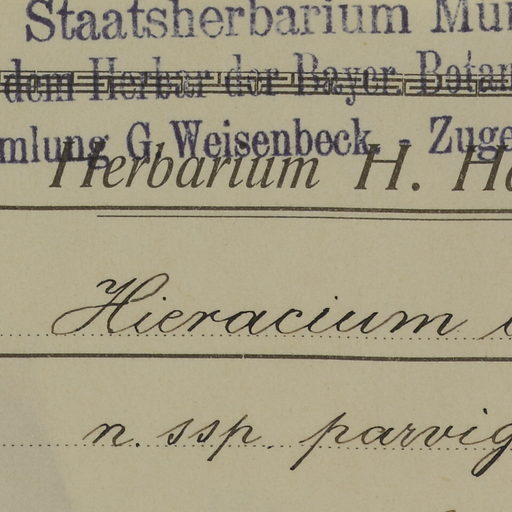 Staatsherbarium Mün
dem Herbar der Bayer. Botan
mlung G. Weisenbeck. - Zuge
Herbarium H. H
Hieracium
n. ssp. parvig